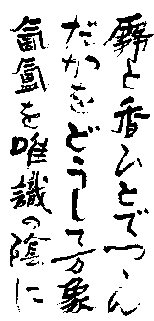 霧と香ひとでつゝん
だかをどうして万象
氤氳を唯識の陰に